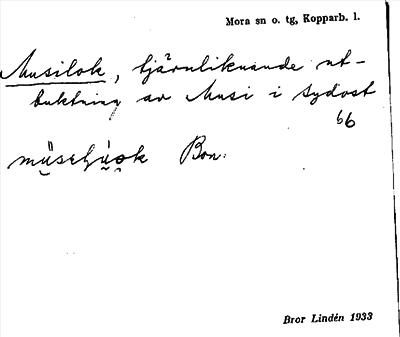 Mora sn o. tg, Kopparb. l.
Musilok, tjärnliknande ut-
buktning av Musi i sydost
66
Bon:
Bror Lindén 1933